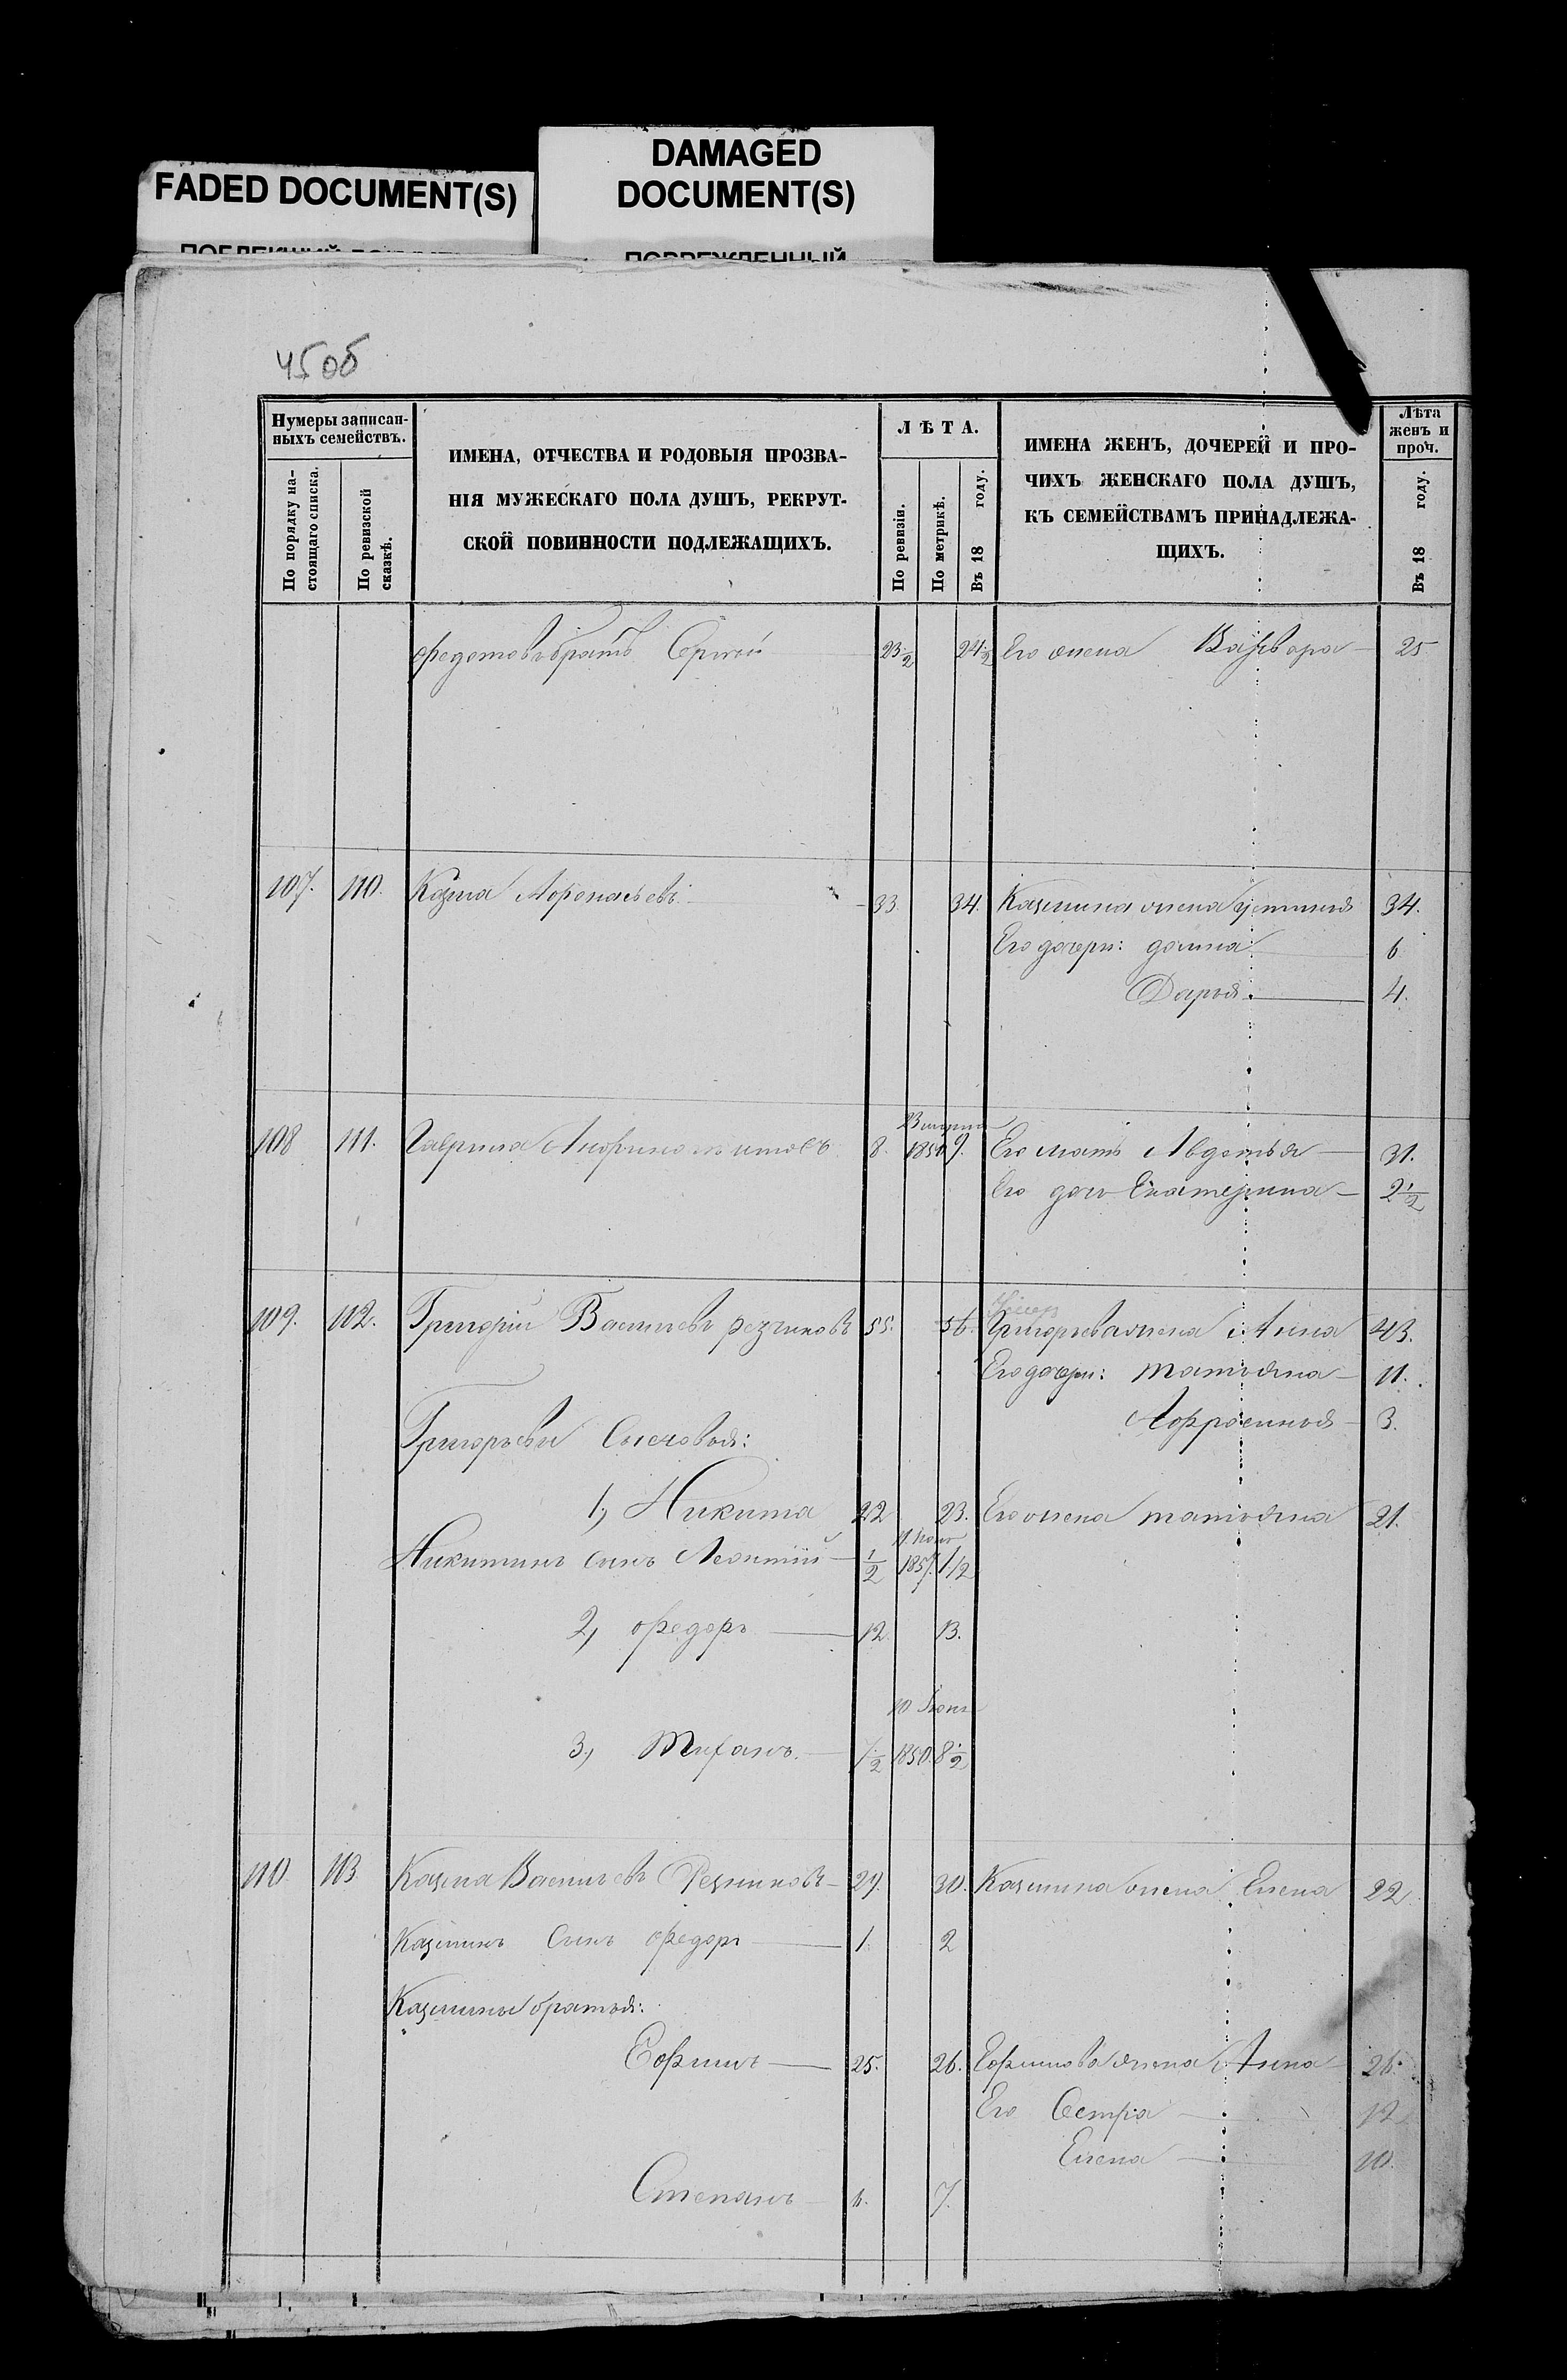 FADED DOCUMENT(S)
DAMAGED
DOCUMENT(S)
45об
Нумеры записан-
ныхъ семействъ.
По порядку на-
стоящаго списка.
По ревизской
сказкѣ.
ИМЕНА, ОТЧЕСТВА И РОДОВЫЯ ПРОЗВА-
НІЯ МУЖЕСКАГО ПОЛА ДУШЪ, РЕКРУТ-
СКОЙ ПОВИННОСТИ ПОДЛЕЖАЩИХЪ.
ЛѢТА.
По ревизіи.
По метрикѣ.
Въ 18 году.
ИМЕНА ЖЕНЪ, ДОЧЕРЕЙ И ПРО-
ЧИХЪ ЖЕНСКАГО ПОЛА ДУШЪ,
КЪ СЕМЕЙСТВАМЪ ПРИНАДЛЕЖА-
ЩИХЪ.
Лѣта
женъ и
проч.
Въ 18 году.
Федотовъ братъ Сергѣй 23 1/2 24 1/2 Его жена Варвара 25
107. 110. Козма Афонасьевъ 33. 34. Казмина жена Устинья 34.
Его дочери: домна 6
Дарья 4.
108 111. Гаврила 8. 1850 9. Его мать Авдотья 31.
Его дочь Екатерина 2 1/2
109. 112. Григорій Васильевъ резчиковъ 55. 56. Григорьева жена Анна 43.
Его дочери: татьяна 11.
Афросинья 3.
Григорьевы Сыновья:
1, Никита 22 23. Его жена татьяна 21.
Никитинъ сынъ Леонтій 1/2 1857. 1 1/2
2, Федоръ 12. 13.
10 Іюня
3, Тифанъ. 7 1/2 1850. 8 1/2
110 113 Казма Васильевъ Резниковъ 29. 30. Казмина жена Елена 22
Казминъ Сынъ Федоръ 1. 2
Казмины братья:
Ефимъ 25. 26. Ефимова жена Анна 26.
Его Сестра 12
Елена 10.
Степанъ 6. 7.